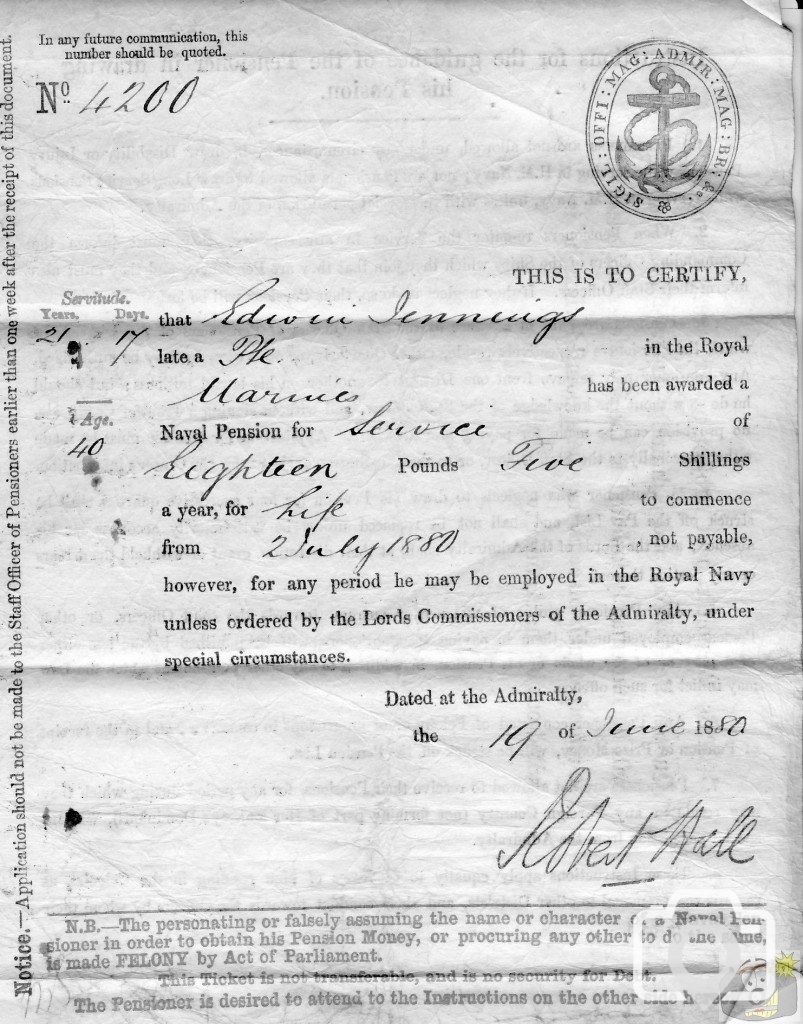 In any future communication, this
number should be quoted.
No. 4200
SIGIL: OFFI: MAG: ADMIR: MAG: BR: &c.
THIS IS TO CERTIFY,
Servitude.
Years. Days.
21 17
that Edwin Jennings
late a Pte. in the Royal
Marines has been awarded a
Age.
40
Naval Pension for Service of
Eighteen Pounds Five Shillings
a year, for Life to commence
from 2 July 1880, not payable,
however, for any period he may be employed in the Royal Navy
unless ordered by the Lords Commissioners of the Admiralty, under
special circumstances.
Dated at the Admiralty,
the 19 of June 1880
Robert Hall
N.B.—The personating or falsely assuming the name or character of a Naval Pen-
sioner in order to obtain his Pension Money, or procuring any other to do the same,
is made FELONY by Act of Parliament.
This Ticket is not transferable, and is no security for Debt.
The Pensioner is desired to attend to the Instructions on the other side
Notice.—Application should not be made to the Staff Officer of Pensioners earlier than one week after the receipt of this document.